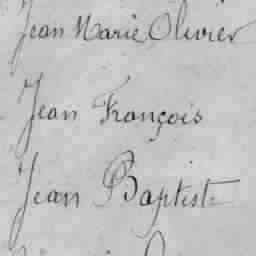 Jean Marie Olivier
Jean François
Jean Baptiste